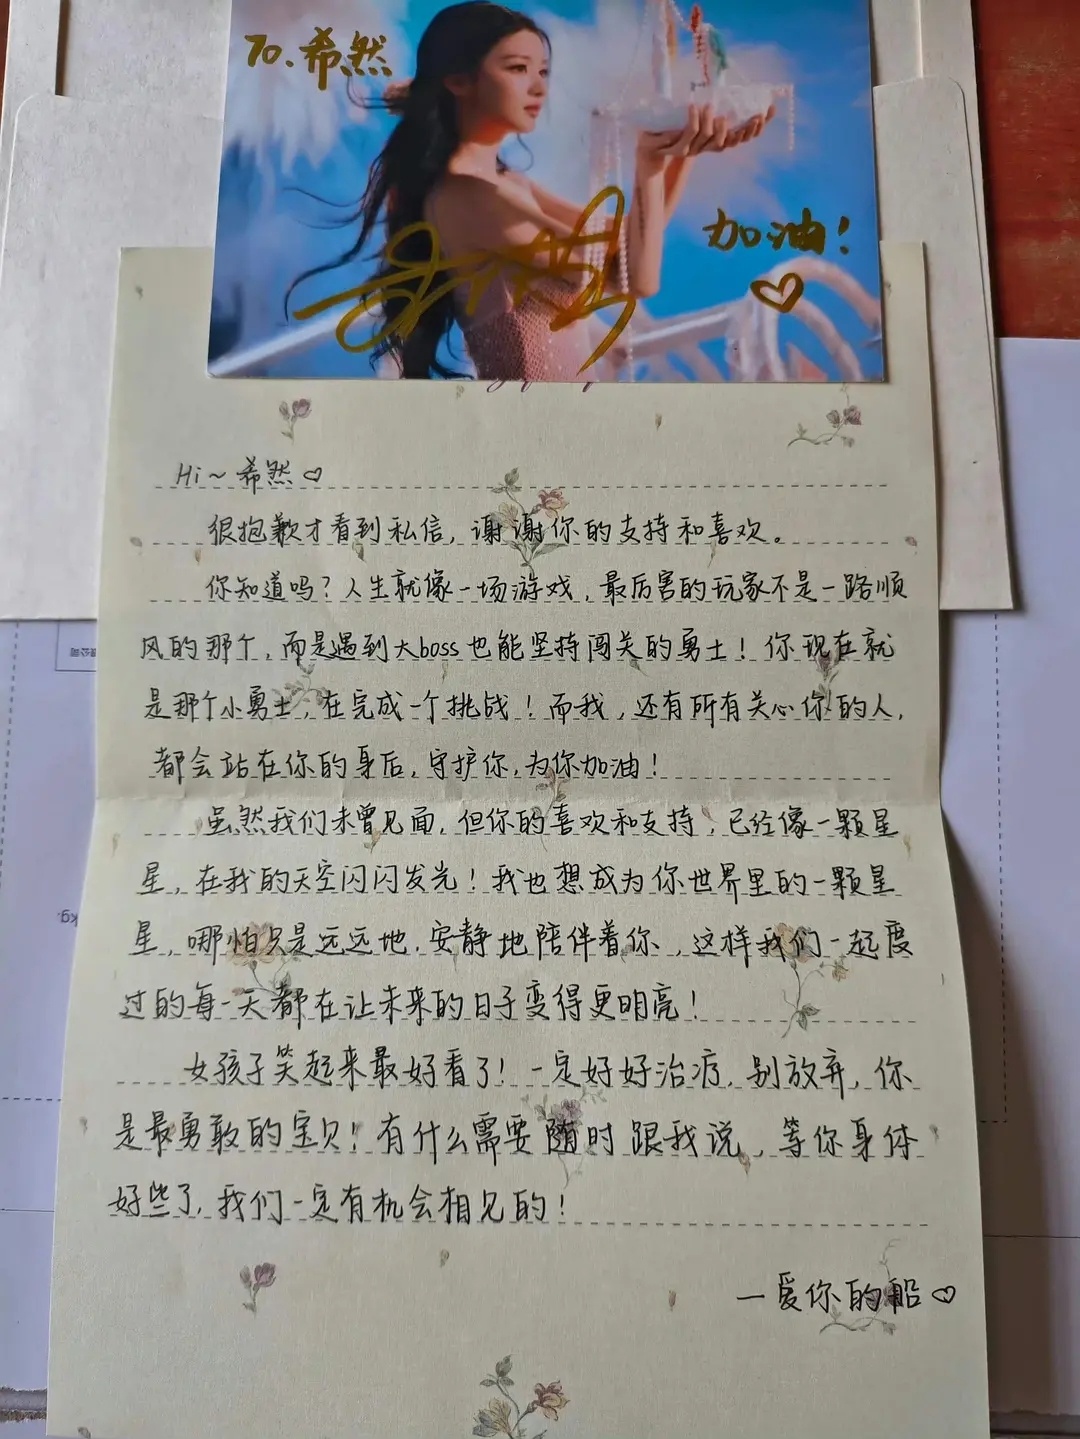 To.希然
加油！
Hi～希然♡
很抱歉才看到私信，谢谢你的支持和喜欢。
你知道吗？人生就像一场游戏，最厉害的玩家不是一路顺
风的那个，而是遇到大boss也能坚持闯关的勇士！你现在就
是那个小勇士，在完成一个挑战！而我，还有所有关心你的人，
都会站在你的身后，守护你，为你加油！
虽然我们未曾见面，但你的喜欢和支持，已经像一颗星
星，在我的天空闪闪发光！我也想成为你世界里的一颗星
星，哪怕只是远远地，安静地陪伴着你，这样我们一起度
过的每一天都在让未来的日子变得更明亮！
女孩子笑起来最好看了！一定好好治疗，别放弃，你
是最勇敢的宝贝！有什么需要随时跟我说，等你身体
好些了，我们一定有机会相见的！
—爱你的船♡
kg.